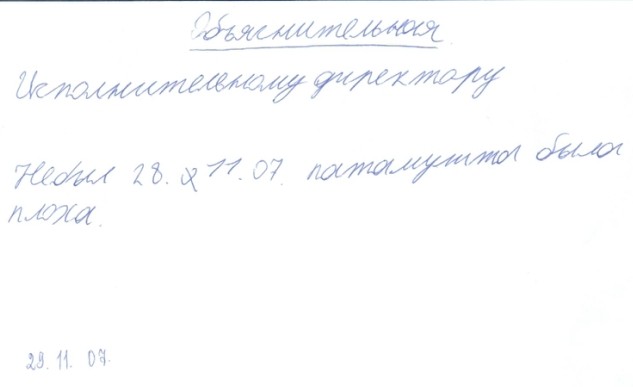 Объяснительная
Исполнительному директору
Небыл 28. 11. 07. патамушта была
плоха.
29. 11. 07.